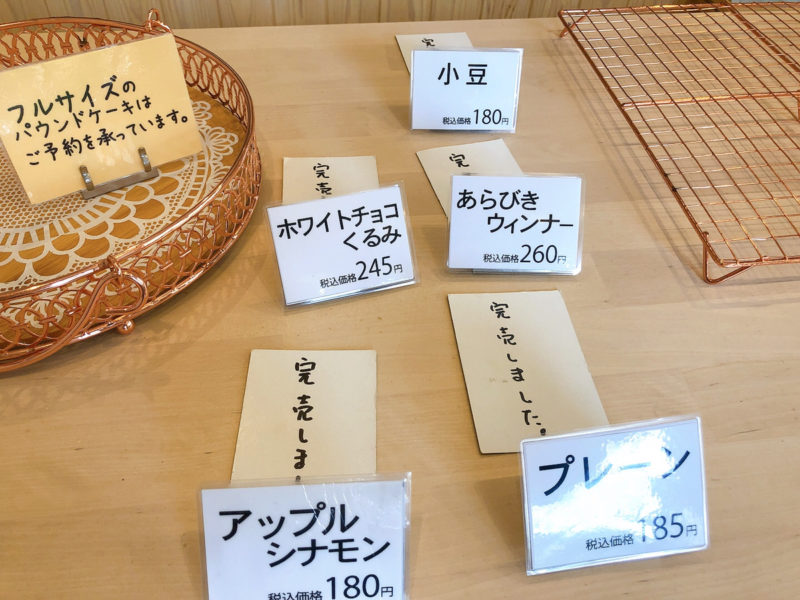 フルサイズの
パウンドケーキは
ご予約を承っています。
完
小豆
税込価格180円
完売
ホワイトチョコ
くるみ
税込価格245円
完
あらびき
ウィンナー
税込価格260円
完売しました。
プレーン
税込価格185円
完売しま
アップル
シナモン
税込価格180円